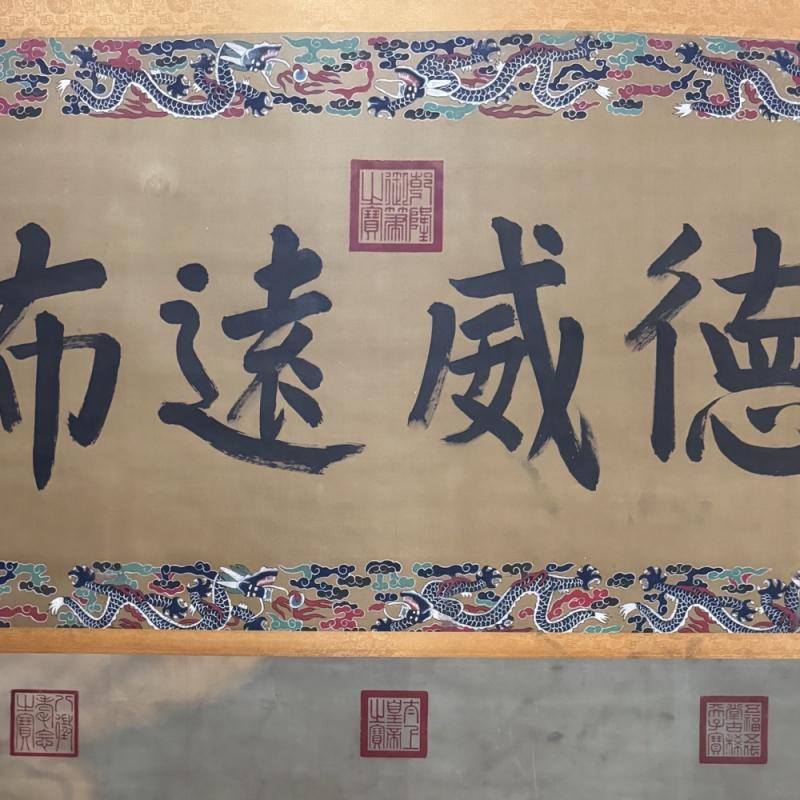 乾隆御筆之寶
德威遠布
五福五代堂古稀天子寶
太上皇帝之寶
八徵耄念之寶